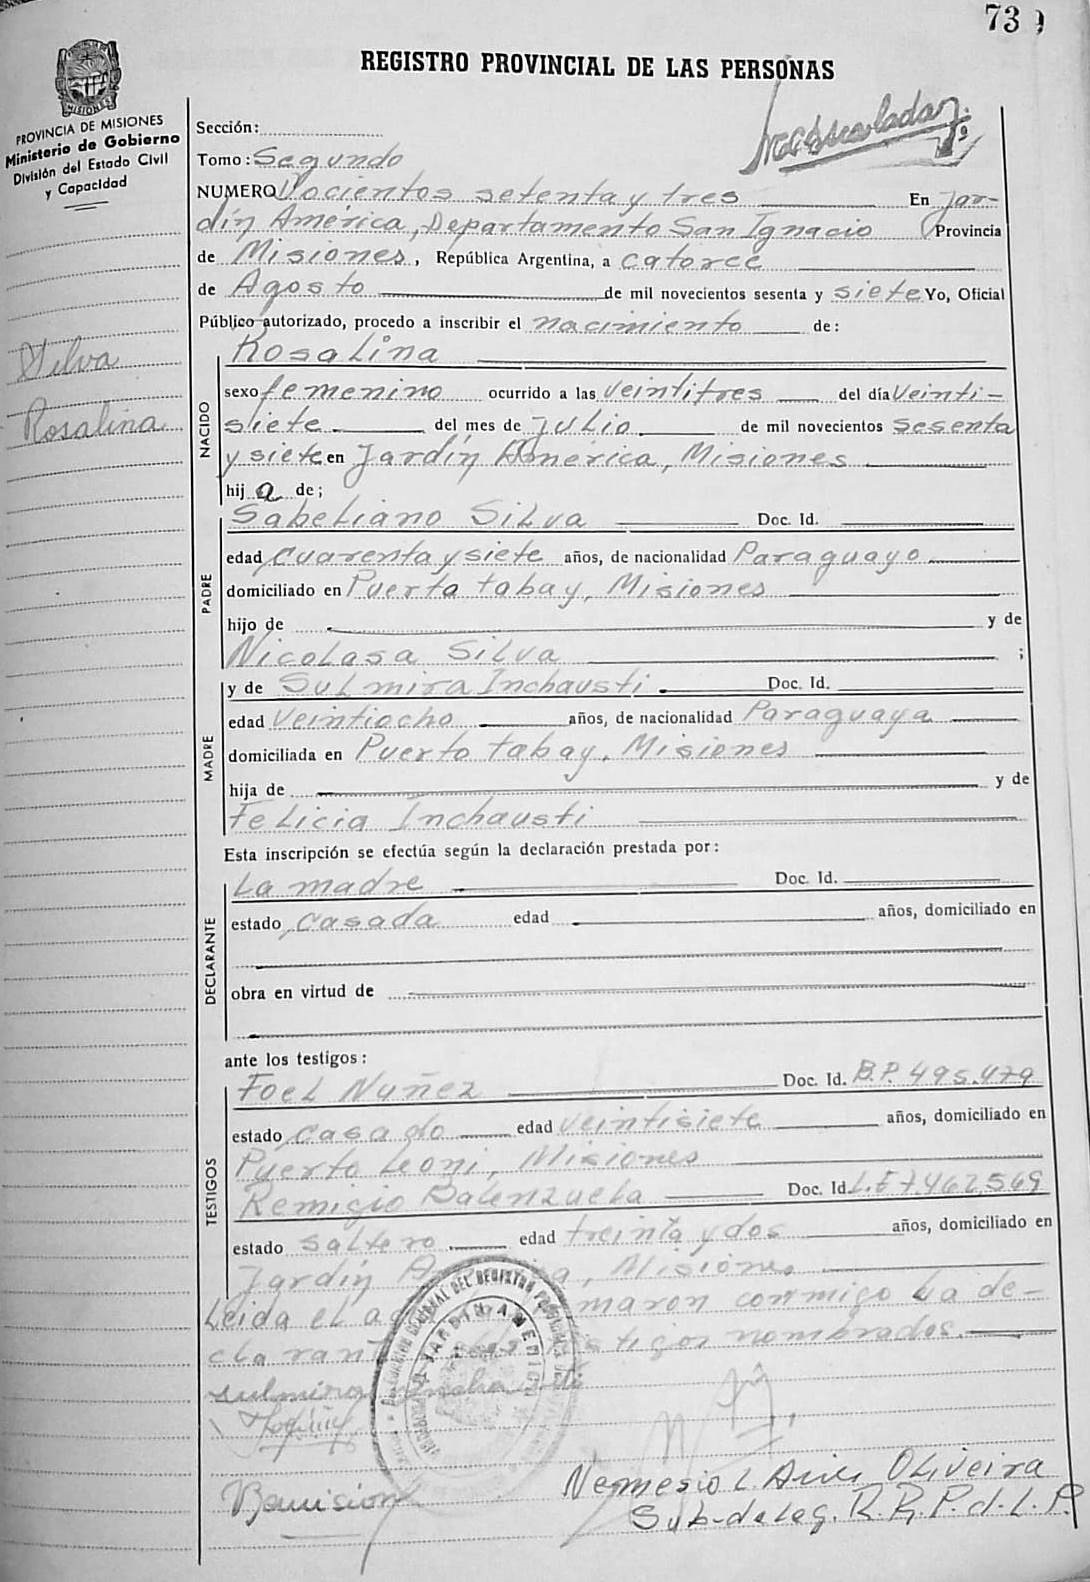 73
REGISTRO PROVINCIAL DE LAS PERSONAS
PROVINCIA DE MISIONES
Ministerio de Gobierno
División del Estado Civil
y Capacidad
Sección:
Tomo: Segundo
NUMERO Docientos setenta y tres En Jar-
dín América, Departamento San Ignacio Provincia
de Misiones, República Argentina, a catorce
de Agosto de mil novecientos sesenta y siete Yo, Oficial
Público autorizado, procedo a inscribir el nacimiento de:
Silva
Rosalina
NACIDO
Rosalina
sexo femenino ocurrido a las veintitres del día veinti-
siete del mes de Julio de mil novecientos sesenta
y siete en Jardín América, Misiones
hij a de;
PADRE
Sabeliano Silva Doc. Id.
edad cuarenta y siete años, de nacionalidad Paraguayo
domiciliado en Puerto tabay, Misiones
hijo de y de
Nicolasa Silva ;
MADRE
y de Sulmira Inchausti Doc. Id.
edad veintiocho años, de nacionalidad Paraguaya
domiciliada en Puerto tabay, Misiones
hija de y de
Felicia Inchausti
Esta inscripción se efectúa según la declaración prestada por:
DECLARANTE
La madre Doc. Id.
estado casada edad años, domiciliado en
obra en virtud de
ante los testigos:
TESTIGOS
Foel Nuñez Doc. Id. B.P. 495.479
estado casado edad veintisiete años, domiciliado en
Puerto Leoni, Misiones
Remigio Balenzuela Doc. Id. L.E 7.462.569
estado saltero edad treinta y dos años, domiciliado en
Jardín América, Misiones
Leida el maron conmigo La de-
clarant nombrados.
sulmira
JARDIN AMERICA
Nemesio L. Oliveira
Sub-deleg. R. R. P. d. L. P.